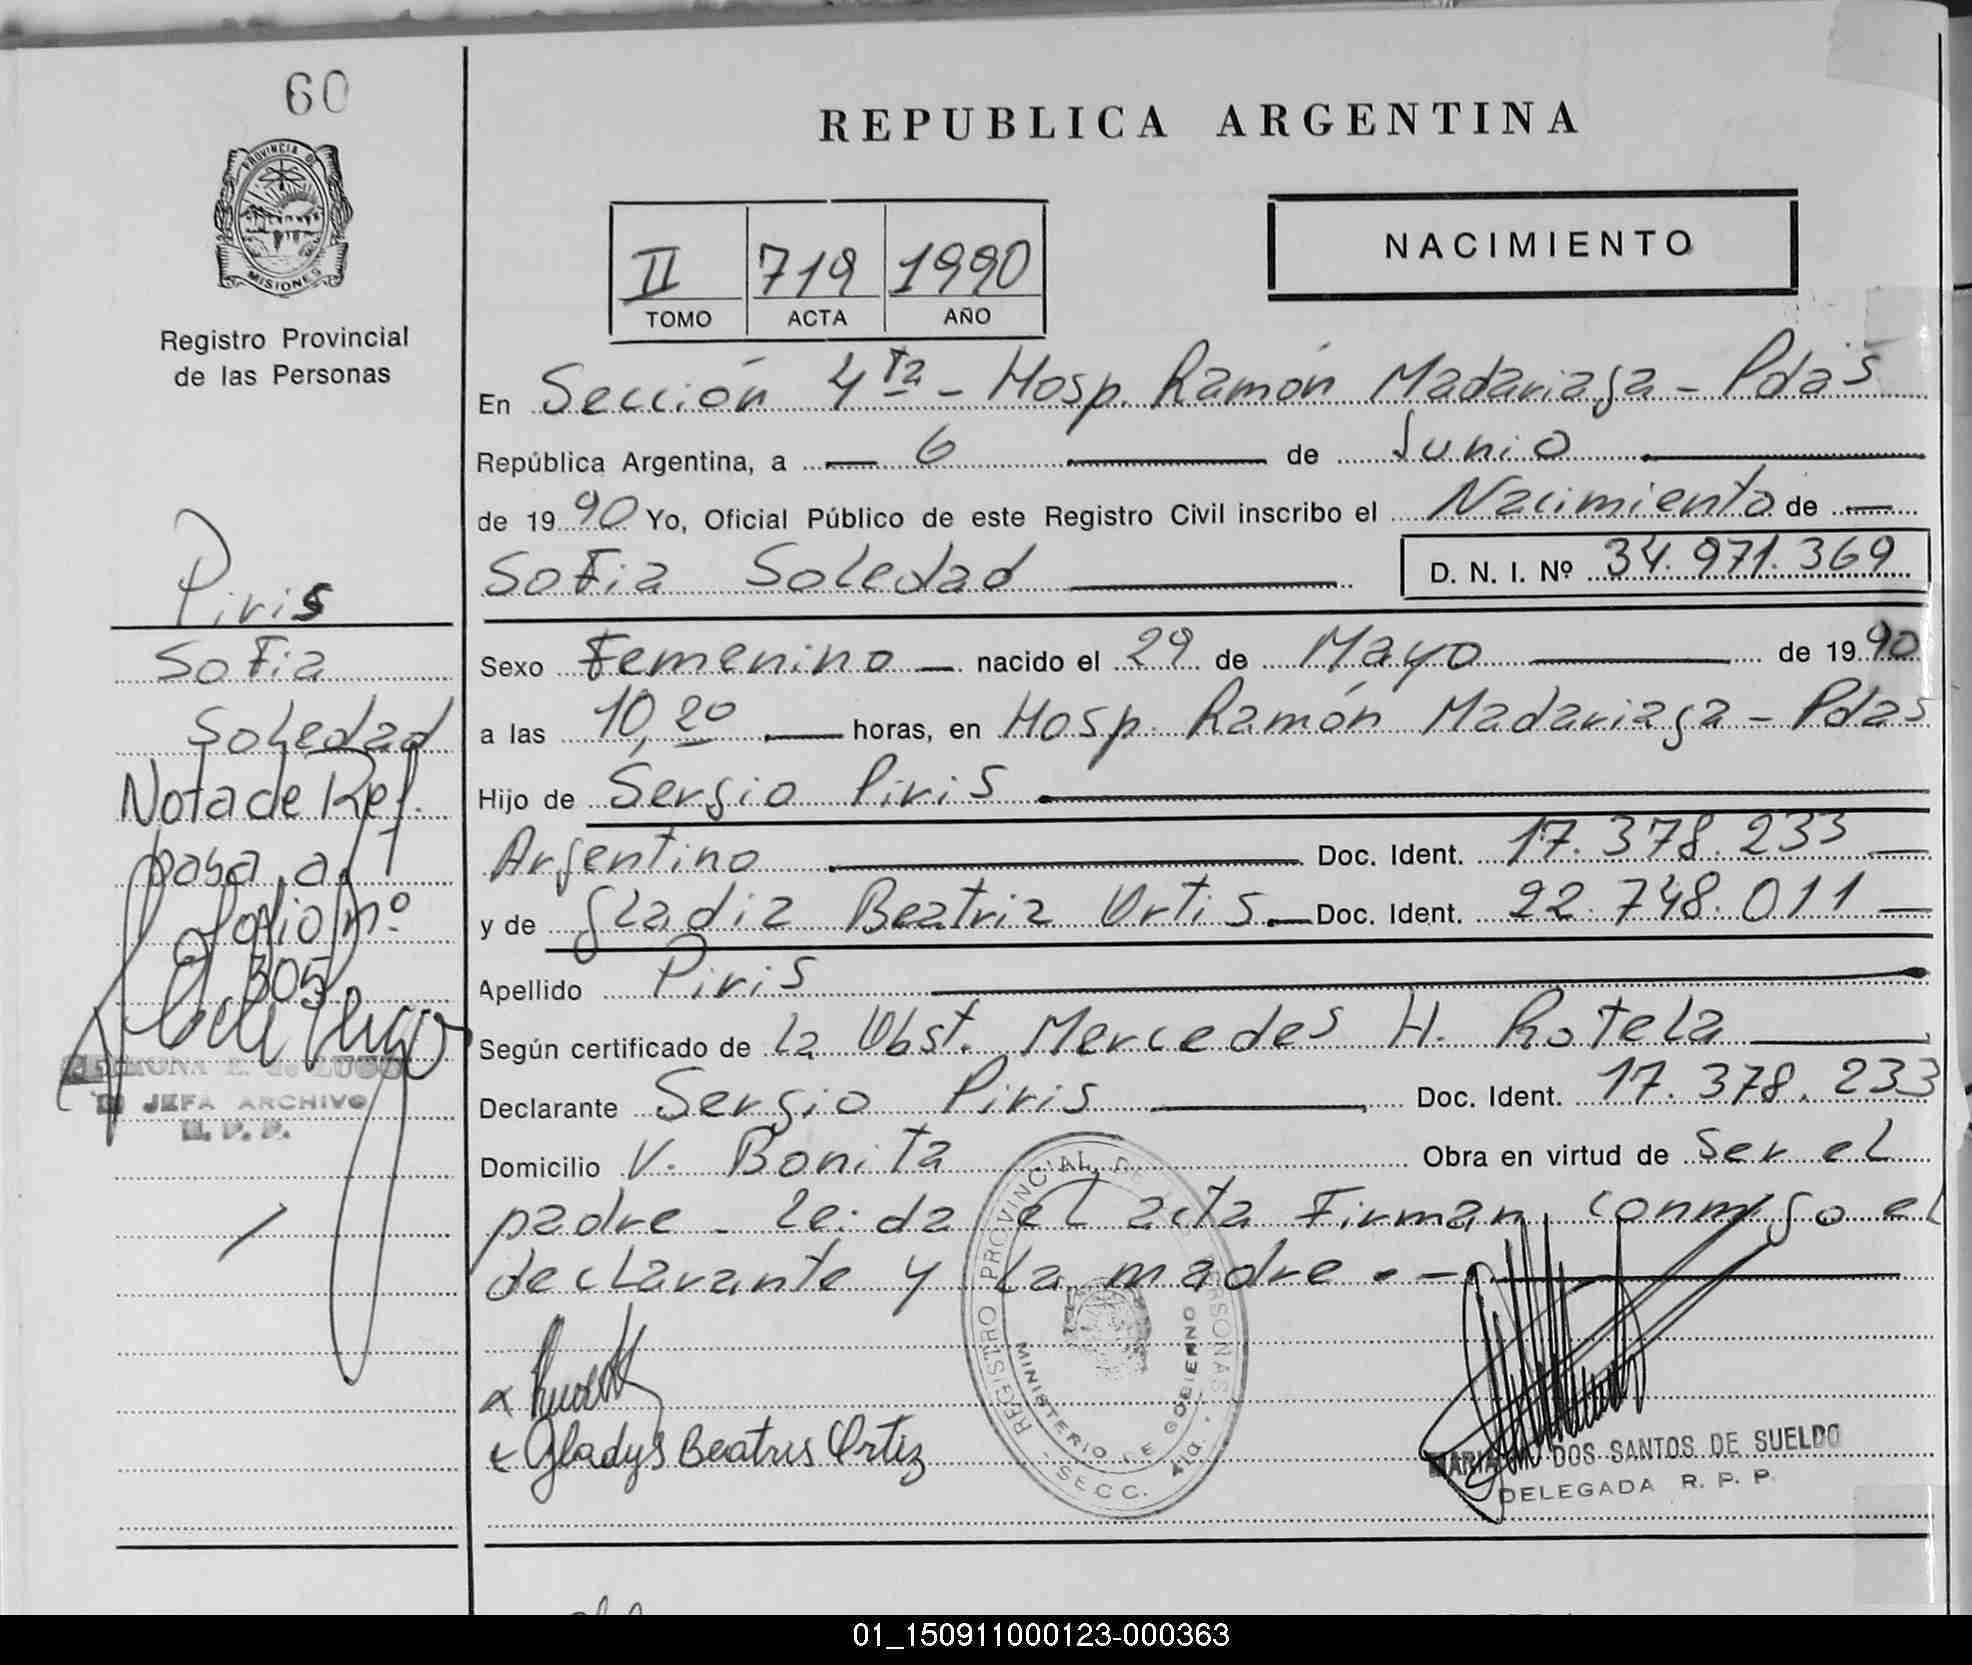 60
PROVINCIA DE
MISIONES
Registro Provincial
de las Personas
Piris
Sofia
Soledad
Nota de Ref.
pasa a
folio nº
305
E. de LUGO
JEFA ARCHIVO
R. P. P.
REPUBLICA ARGENTINA
II 719 1990
TOMO ACTA AÑO
NACIMIENTO
En Sección 4ta - Hosp. Ramón Madariaga - Pdas
República Argentina, a 6 de Junio
de 1990 Yo, Oficial Público de este Registro Civil inscribo el Nacimiento de
Sofia Soledad D. N. I. Nº 34.971.369
Sexo Femenino nacido el 29 de Mayo de 1990
a las 10,20 horas, en Hosp. Ramón Madariaga - Pdas
Hijo de Sergio Piris
Argentino Doc. Ident. 17.378.233
y de Gladiz Beatriz Ortis Doc. Ident. 22.748.011
Apellido Piris
Según certificado de la Obst. Mercedes H. Rotela
Declarante Sergio Piris Doc. Ident. 17.378.233
Domicilio V. Bonita Obra en virtud de Ser el
padre - Leida el acta Firman conmigo el
declarante y La madre . -
Gladys Beatris Ortiz
REGISTRO PROVINCIAL DE LAS PERSONAS
MINISTERIO DE GOBIERNO
SECC. 4ta.
DOS SANTOS DE SUELDO
DELEGADA R. P. P.
01_150911000123-000363